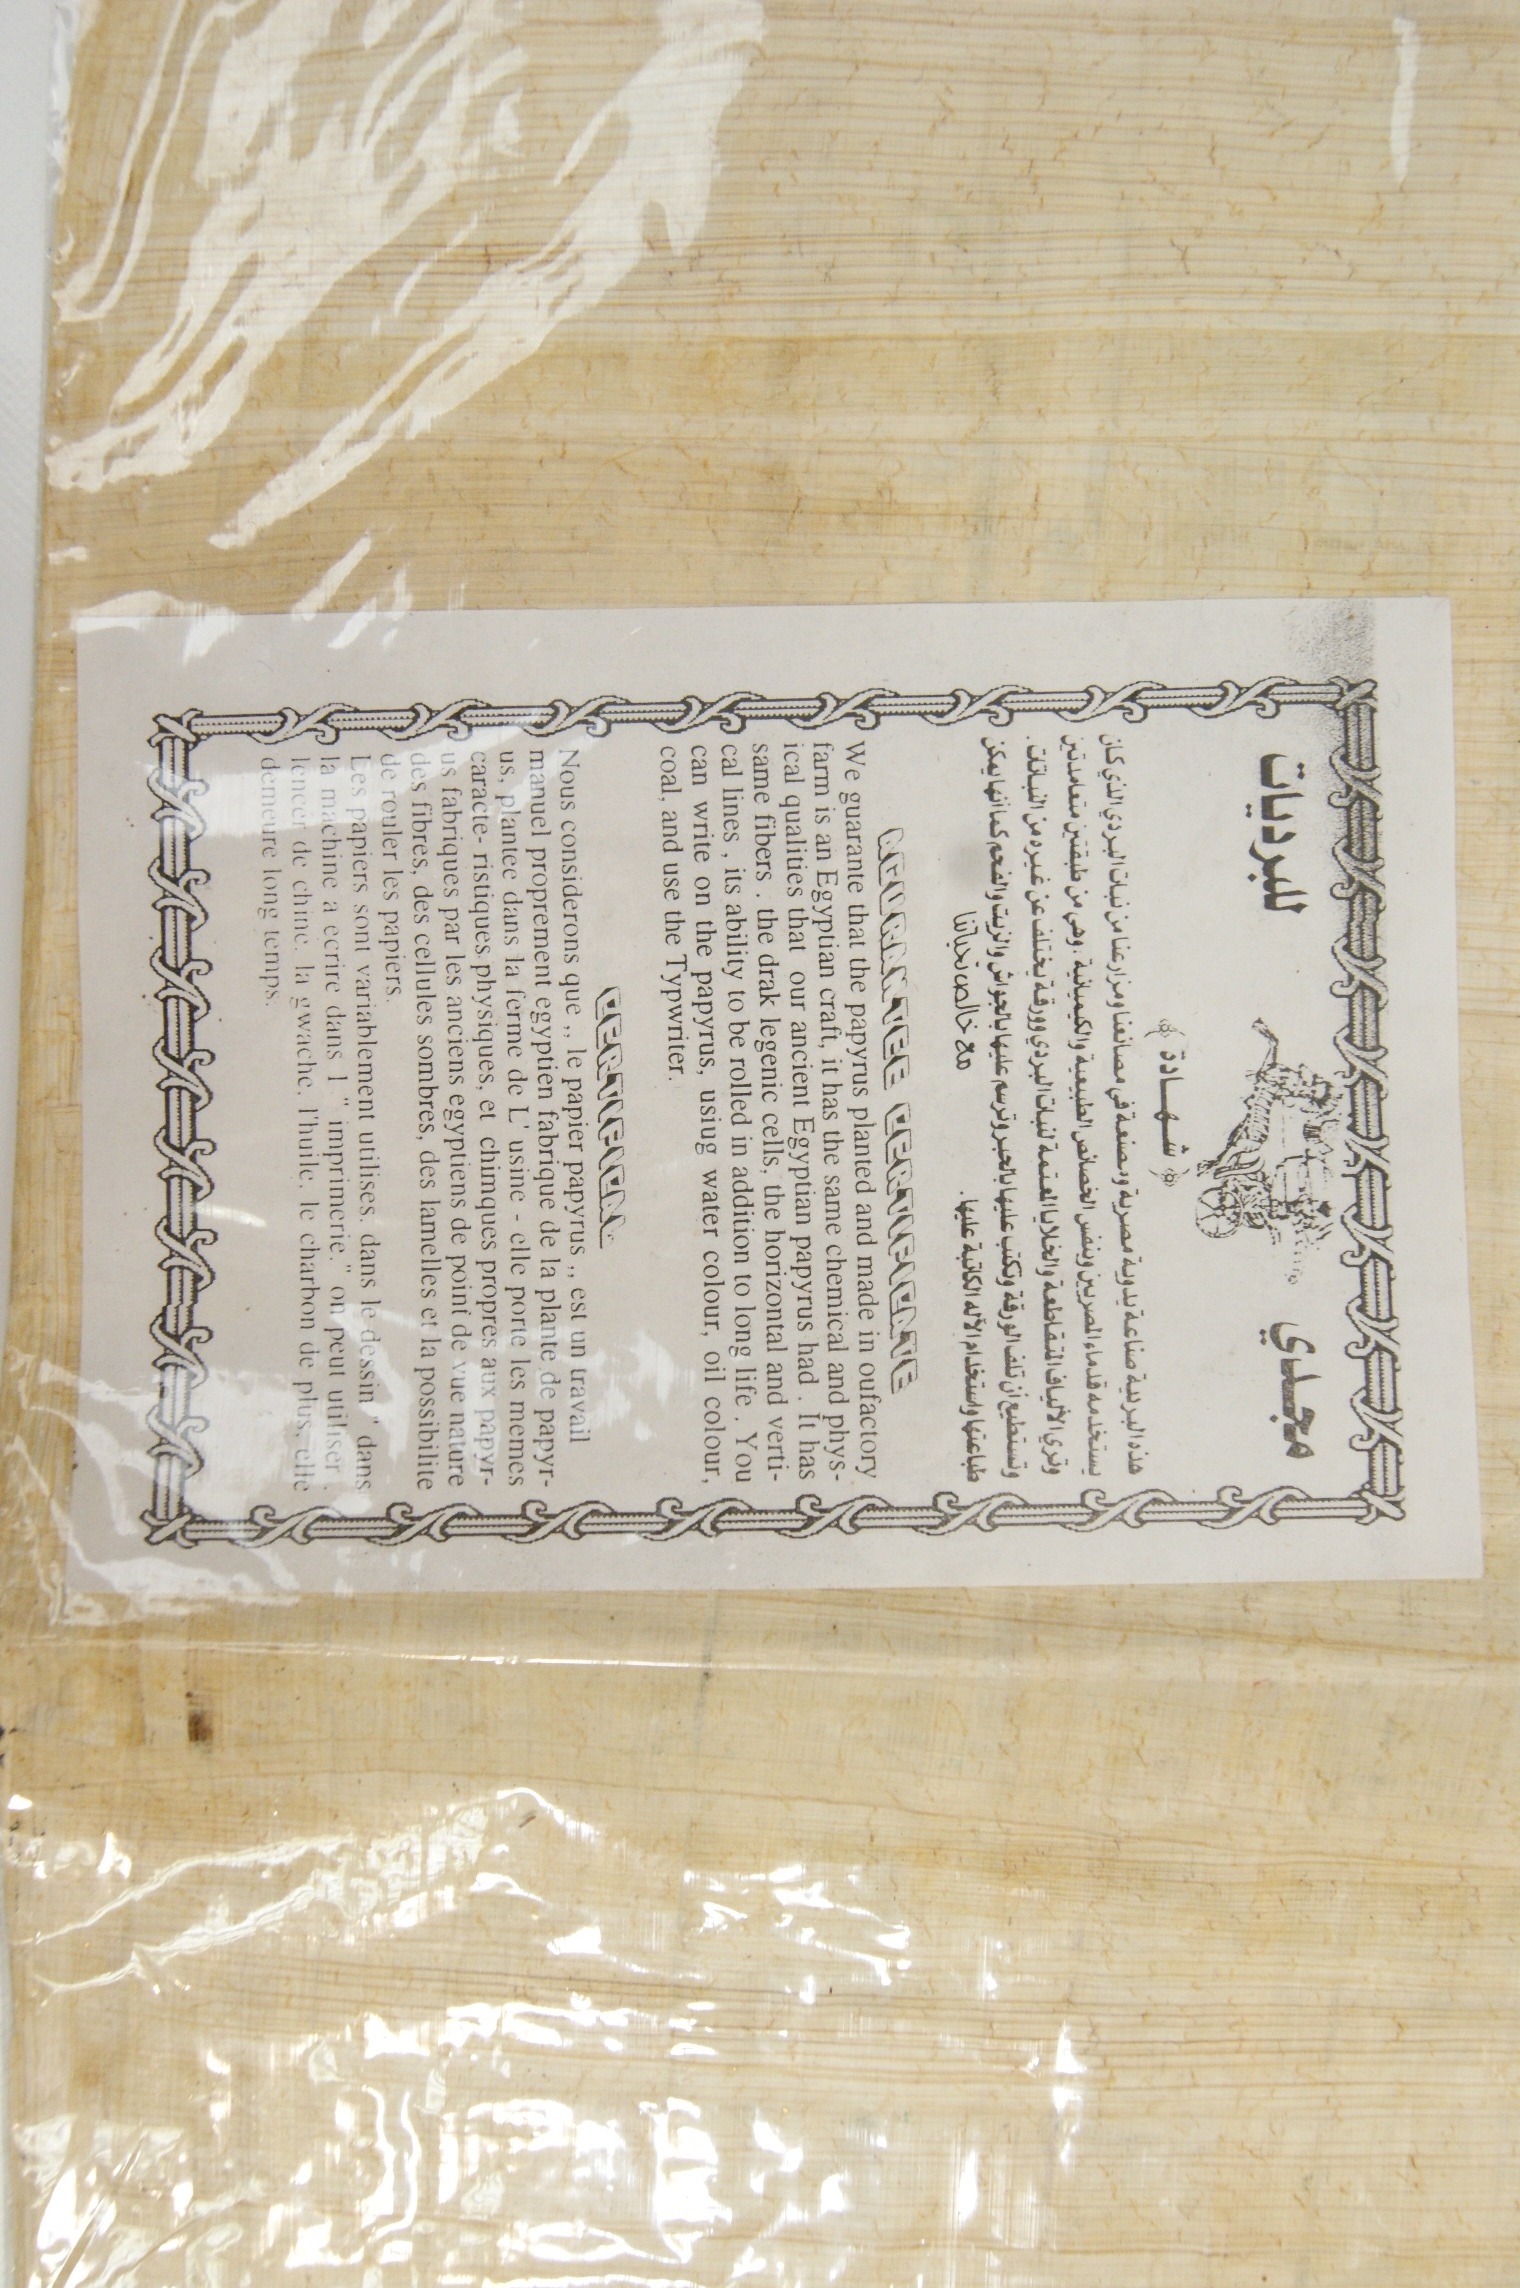 مجدي للبرديات
شهادة
هذه البردية صناعة يدوية مصرية ومصنعة في مصانعنا ومزارعنا من نبات البردي الذي كان
يستخدمه قدماء المصريين وبنفس الخصائص الطبيعية والكيميائية . وهي من طبقتين متعامدتين
وترى الألياف المتقاطعة والخلايا العتمة لنبات البردي وورقة يختلف عن غيره من النباتات .
وتستطيع أن تلف الورقة وتكتب عليها بالحبر وترسم عليها بالجواش والزيت والفحم كما أنها يمكن
طباعتها واستخدام الآله الكاتبة عليها .
مع خالص تحياتنا
GUARANTEE CERTIFICATE
We guarante that the papyrus planted and made in oufactory
farm is an Egyptian craft, it has the same chemical and phys-
ical qualities that our ancient Egyptian papyrus had . It has
same fibers . the drak legenic cells, the horizontal and verti-
cal lines , its ability to be rolled in addition to long life . You
can write on the papyrus, usiug water colour, oil colour,
coal, and use the Typwriter.
Nous considerons que ,, le papier papyrus ,, est un travail
manuel proprement egyptien fabrique de la plante de papyr-
us, plantee dans la ferme de L' usine - elle porte les memes
caracte- ristiques physiques, et chimques propres aux papyr-
us fabriques par les anciens egyptiens de point de vue nature
des fibres, des cellules sombres, des lamelles et la possibilite
de rouler les papiers.
Les papiers sont variablement utilises. dans le dessin " dans
la machine a ecrire dans l " imprimerie." on peut utiliser .
lencer de chine. la gwache. l'huile. le charbon de plus, elle
demeure long temps.